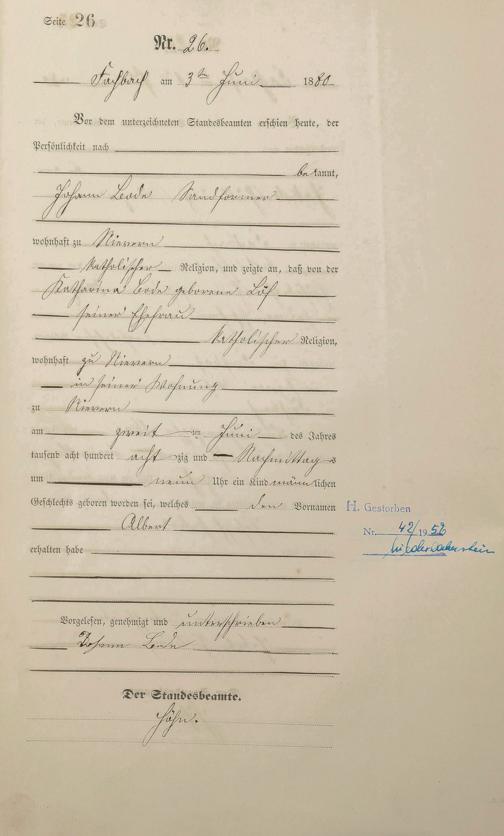 Seite 26
Nr. 26.
Fachbach am 3ten Juni 1880
Vor dem unterzeichneten Standesbeamten erschien heute, der
Persönlichkeit nach
bekannt,
Johann Bode Sandformer
wohnhaft zu Nievern
katholischer Religion, und zeigte an, daß von der
Katharina Bode geborene Löf
seiner Ehefrau
katholischer Religion,
wohnhaft zu Nievern
in seiner Wohnung
zu Nievern
am zweiten Juni des Jahres
tausend acht hundert achtzig und Nachmittags
um neun Uhr ein Kind männlichen
Geschlechts geboren worden sei, welches den Vornamen
Albert
erhalten habe
H. Gestorben
Nr. 42/1952
Niederlahnstein
Vorgelesen, genehmigt und unterschrieben
Johann Bode
Der Standesbeamte.
Höhn.